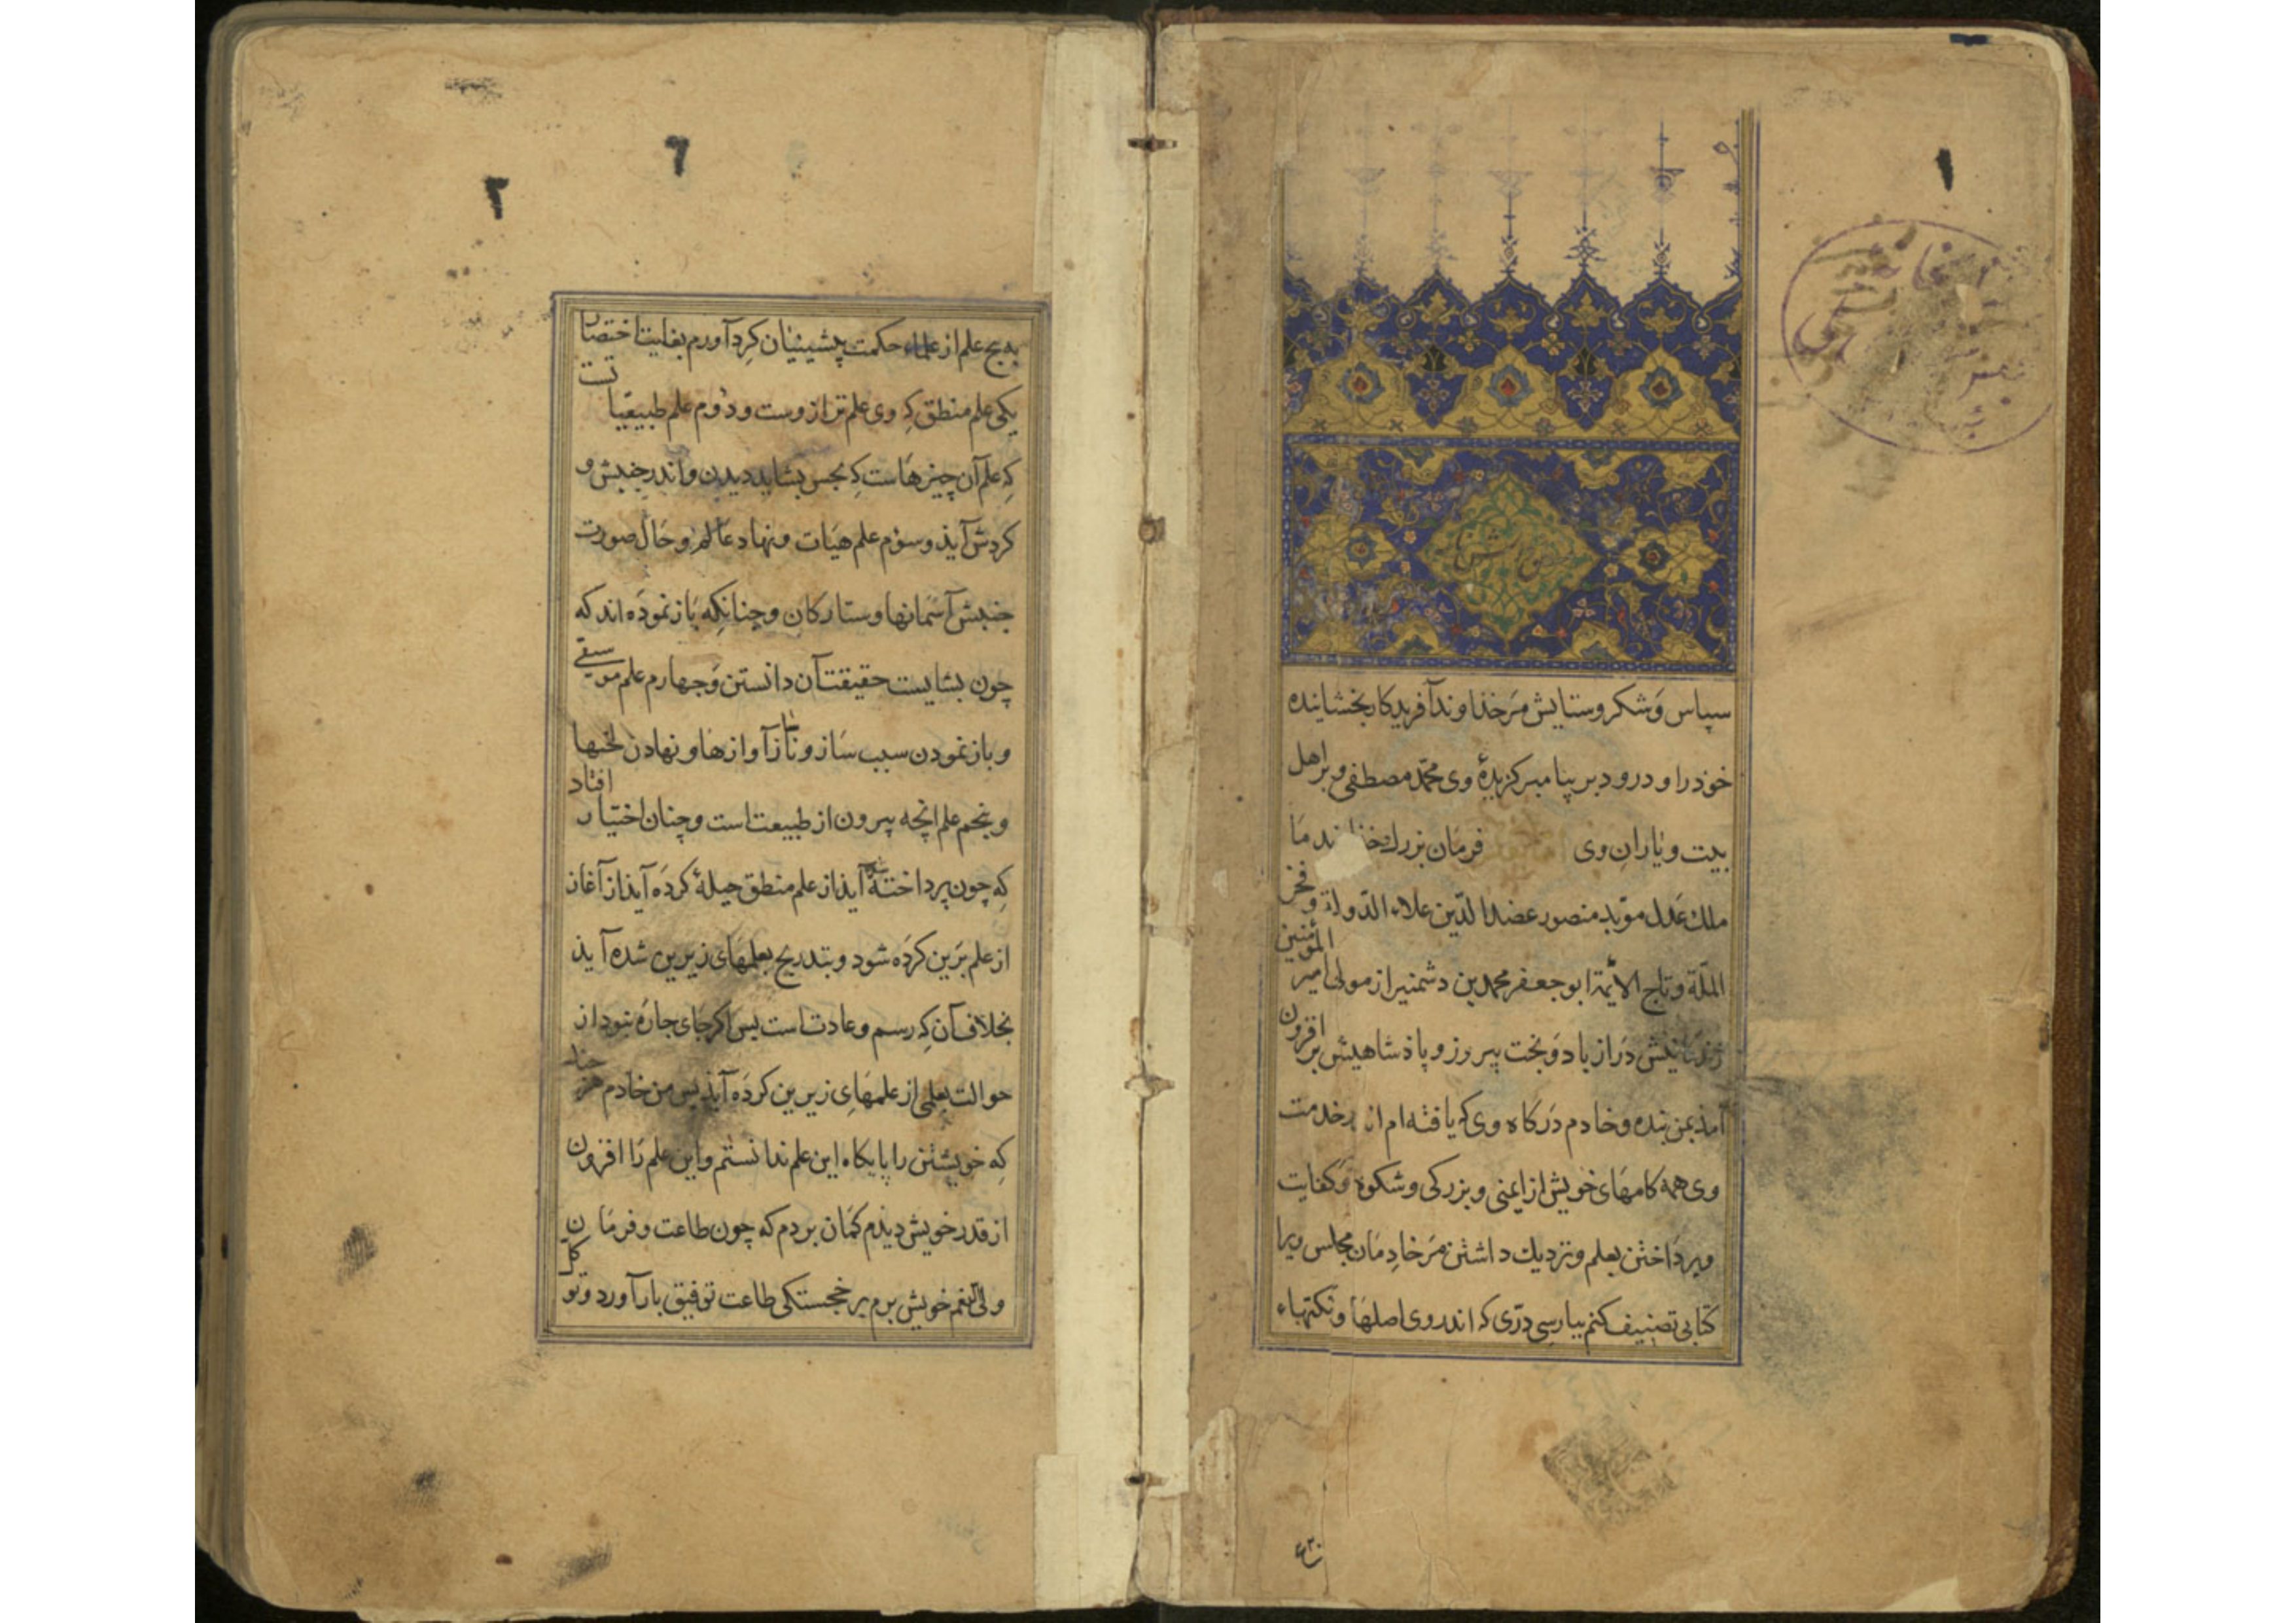 ۱
سپاس و شکر و ستایش مر خذاوند آفریدکار بخشاینده
خوذ را و درود بر پیامبر کزیدهٔ وی محمّد مصطفی و بر اهل
بیت و یاران وی فرمان بزرك ما
ملك عدل مؤید منصور عضد الدّین علاء الدّولة و فخر
الملّة و تاج الائمّة ابو جعفر محمد بن دشمنیراز مولی امیر المؤمنین
زندکانیش دراز باد و بخت پیروز و پاذشاهیش بر افزون
آمذ بمن بنده و خادم درکاه وی که یافته ام از در خدمت
وی همه کامهای خویش از ایمنی و بزرکی و شکوه و کفایت
و پرداختن بعلم و نزدیك داشتن مر خادمان مجلس ویرا
کتابی تصنیف کنم بپارسی درّی که اندر وی اصلها و نکتهاء
۴۳۰
۲
۶
پنج علم از علماء حکمت پیشینیان کرد آورم بغایت اختصار
یکی علم منطق که وی علم ترازوست و دوم علم طبیعیاتست
که علم آن چیزهاست که بحس بشاید دیدن و اندر جنبش و
کردش آیذ و سوم علم هیات و نهاد عالم و حال صورت
جنبش آسمانها و ستارکان و چنانکه باز نموده اند که
چون بشایست حقیقت آن دانستن و چهارم علم موسیقی
و باز نمودن سبب ساز و ناساز آوازها و نهادن لحنها
و پنجم علم انچه بیرون از طبیعت است و چنان اختیار افتاد
که چون پرداخته شده آیذ از علم منطق حیلهٔ کرده آیذ از آغاز
از علم برین کرده شود و بتدریج بعلمهای زیرین شده آیذ
بخلاف آن که رسم و عادت است پس اکر جای چاره نبود از
حوالت بعلمی از علمهای زیرین کرده آیذ پس من خادم هر چند
که خویشتن را پایکاه این علم ندانستم و این علم را افزون
از قدر خویش دیذم کمان بردم که چون طاعت و فرمان
ولی النعم خویش برم بر خجستکی طاعت توفیق بار آورد و توکل